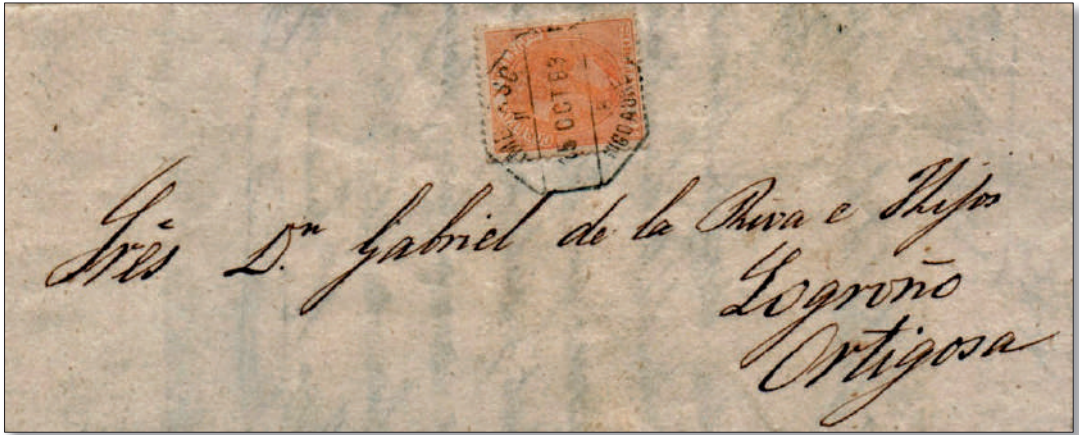 OCT 83
Srès D.n Gabriel de la Riva e Hijos
Logroño
Ortigosa